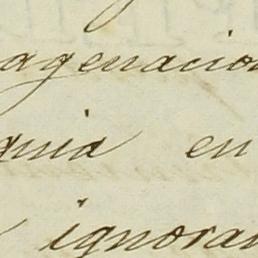 agenacion
quia en
ignoran